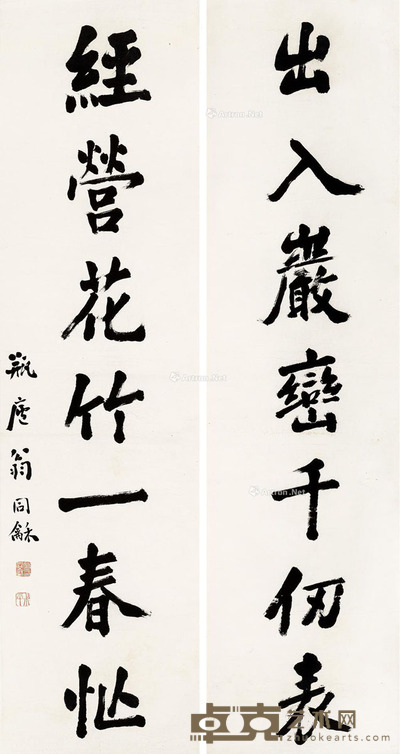 出入巖巒千仞表
經營花竹一春忙
瓶廬翁同龢
Artron.Net
Artron.Net
Artron.Net
Artron.Net
卓克艺术网
www.zhuokearts.com